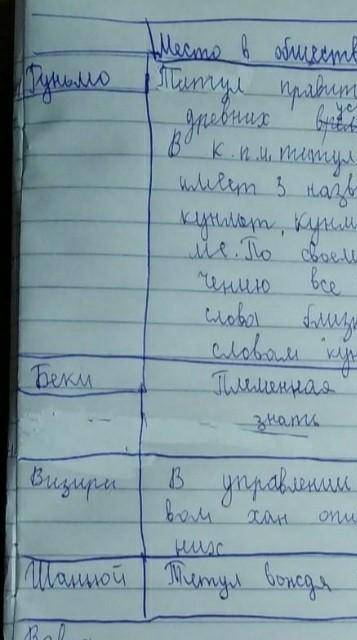 Место в обществ
Гуньмо
Титул правит
древних ус
В к.п.и. титул
имеет 3 назв
кунмот, кунм
ме. По своем
чению все
слова близк
словам кун
Беки
Племенная
знать
Визири
В управлении
вом хан опи
них
Шанюй
Титул вождя